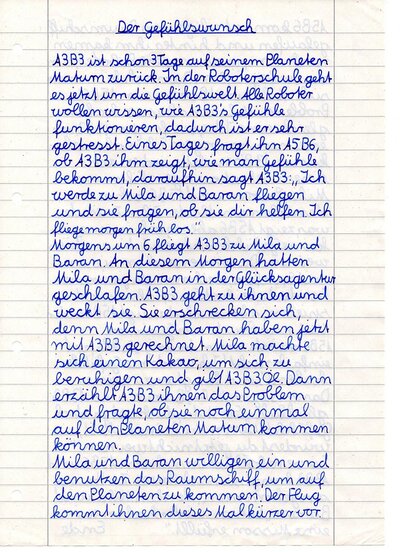 Der Gefühlswunsch
A3B3 ist schon 3 Tage auf seinem Planeten
Matum zurück. In der Roboterschule geht
es jetzt um die Gefühlswelt. Alle Roboter
wollen wissen, wie A3B3's Gefühle
funktionieren, dadurch ist er sehr
gestresst. Eines Tages fragt ihn A5B6,
ob A3B3 ihm zeigt, wie man Gefühle
bekommt, daraufhin sagt A3B3: „Ich
werde zu Mila und Baran fliegen
und sie fragen, ob sie dir helfen. Ich
fliege morgen früh los."
Morgens um 6 fliegt A3B3 zu Mila und
Baran. An diesem Morgen hatten
Mila und Baran in der Glücksagentur
geschlafen. A3B3 geht zu ihnen und
weckt sie. Sie erschrecken sich,
denn Mila und Baran haben jetzt
mit A3B3 gerechnet. Mila machte
sich einen Kakao, um sich zu
beruhigen und gibt A3B3 Öl. Dann
erzählt A3B3 ihnen das Problem
und fragte, ob sie noch einmal
auf den Planeten Matum kommen
können.
Mila und Baran willigen ein und
benutzen das Raumschiff, um auf
den Planeten zu kommen. Der Flug
kommt ihnen dieses Mal kürzer vor.